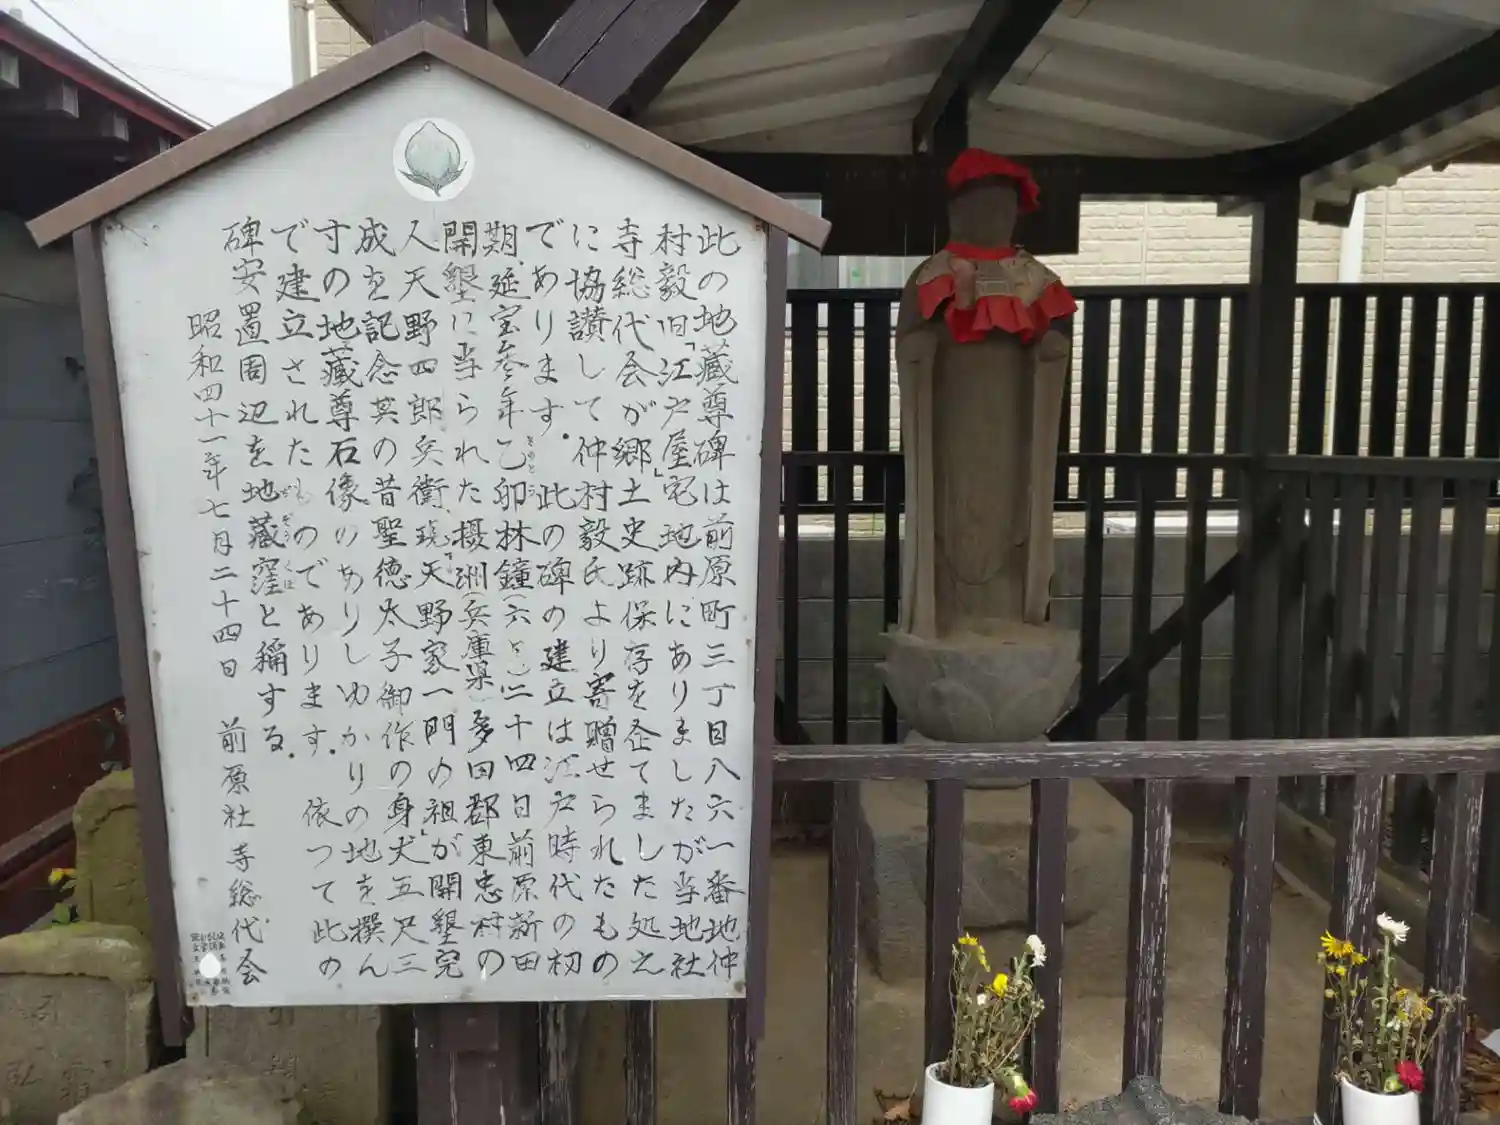 此の地藏尊碑は前原町三丁目八六一番地仲
村毅旧「江戸屋」宅地内にありましたが当地社
寺総代会が郷土史跡保存を企てました処之
に協讃して仲村毅氏より寄贈せられたもの
であります。此の碑の建立は江戸時代の初
期、延宝参年乙卯林鐘(六)二十四日前原新田
開墾に当られた摂洲(兵庫県)多田郡東忠村の
人天野四郎兵衛、現天野家一門の祖が開墾完
成を記念其の昔聖徳太子御作の身丈五尺三
寸の地藏尊石像のありしゆかりの地を撰ん
で建立されたものであります。依つて此の
碑安置周辺を地藏窪と稱する。
昭和四十一年七月二十四日 前原社寺総代会